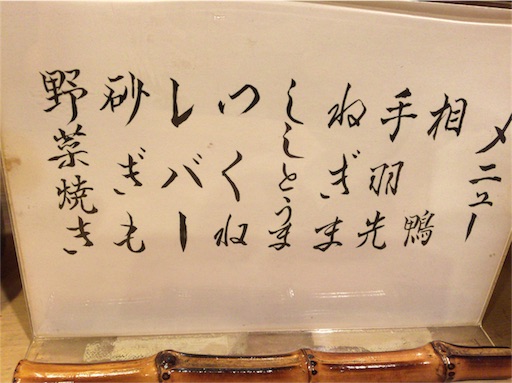 メニュー
相鴨
手羽先
ねぎま
ししとうま
つくね
レバー
砂ぎも
野菜焼き